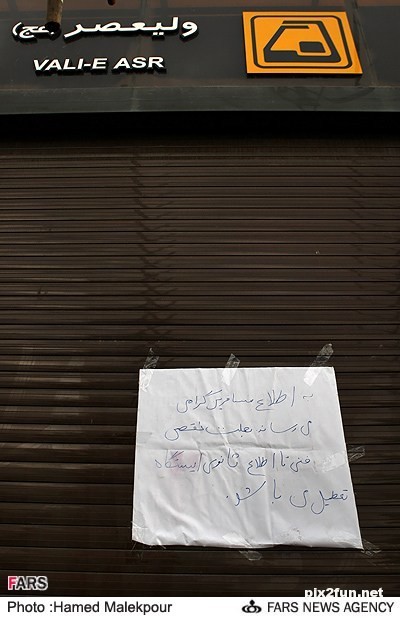 ولیعصر (عج)
VALI-E ASR
به اطلاع مسافرین گرامی
می رساند بعلت نقص
فنی تا اطلاع ثانوی ایستگاه
تعطیل می باشد.
pix2fun.net
FARS
Photo :Hamed Malekpour
FARS NEWS AGENCY